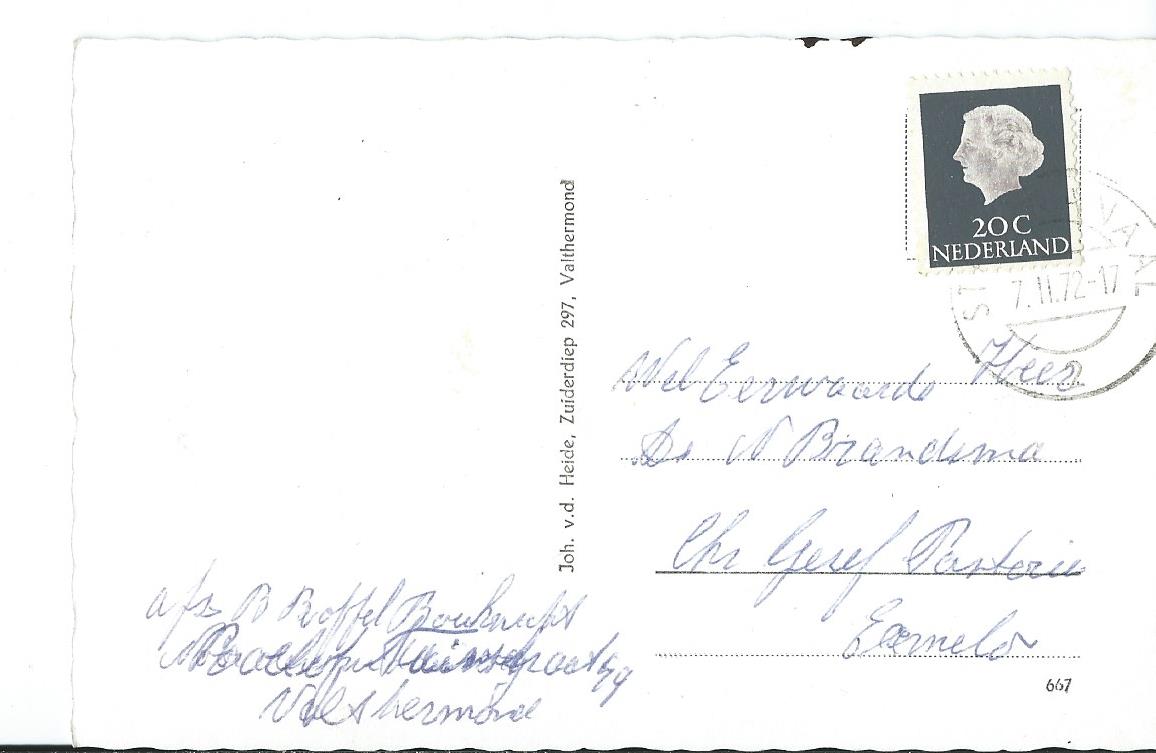 20 C
NEDERLAND
7.11.72-17
Joh. v.d. Heide, Zuiderdiep 297, Valthermond
Wel Eerwaarde Heer
Ds N Brandsma
Chr Geref Pastorie
afz B Boffel
Valthermond
667